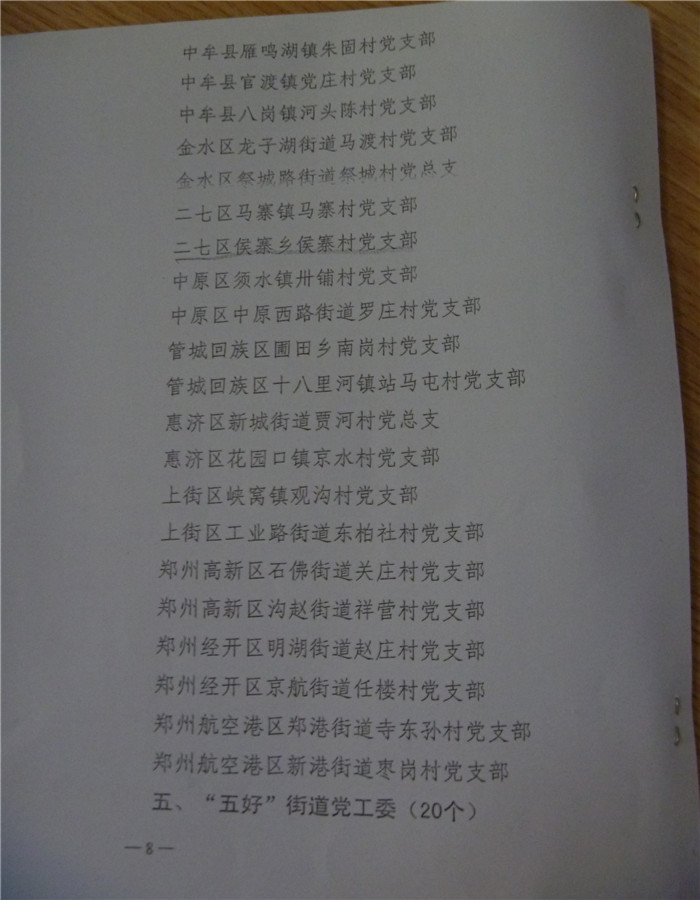 中牟县雁鸣湖镇朱固村党支部
中牟县官渡镇党庄村党支部
中牟县八岗镇河头陈村党支部
金水区龙子湖街道马渡村党支部
金水区祭城路街道祭城村党总支
二七区马寨镇马寨村党支部
二七区侯寨乡侯寨村党支部
中原区须水镇卅铺村党支部
中原区中原西路街道罗庄村党支部
管城回族区圃田乡南岗村党支部
管城回族区十八里河镇站马屯村党支部
惠济区新城街道贾河村党总支
惠济区花园口镇京水村党支部
上街区峡窝镇观沟村党支部
上街区工业路街道东柏社村党支部
郑州高新区石佛街道关庄村党支部
郑州高新区沟赵街道祥营村党支部
郑州经开区明湖街道赵庄村党支部
郑州经开区京航街道任楼村党支部
郑州航空港区郑港街道寺东孙村党支部
郑州航空港区新港街道枣岗村党支部
五、“五好”街道党工委（20个）
—8—